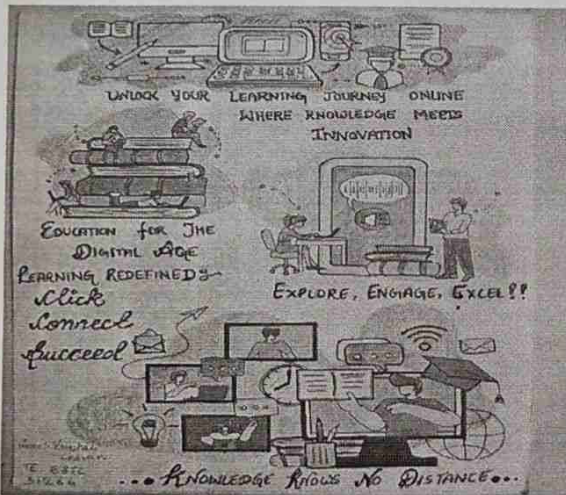 UNLOCK YOUR LEARNING JOURNEY ONLINE
WHERE KNOWLEDGE MEETS
INNOVATION
EDUCATION for THE
DIGITAL AGE
LEARNING REDEFINED
Click
Connect
Succeed
EXPLORE, ENGAGE, EXCEL!!
TE
...KNOWLEDGE KNOWS NO DISTANCE...